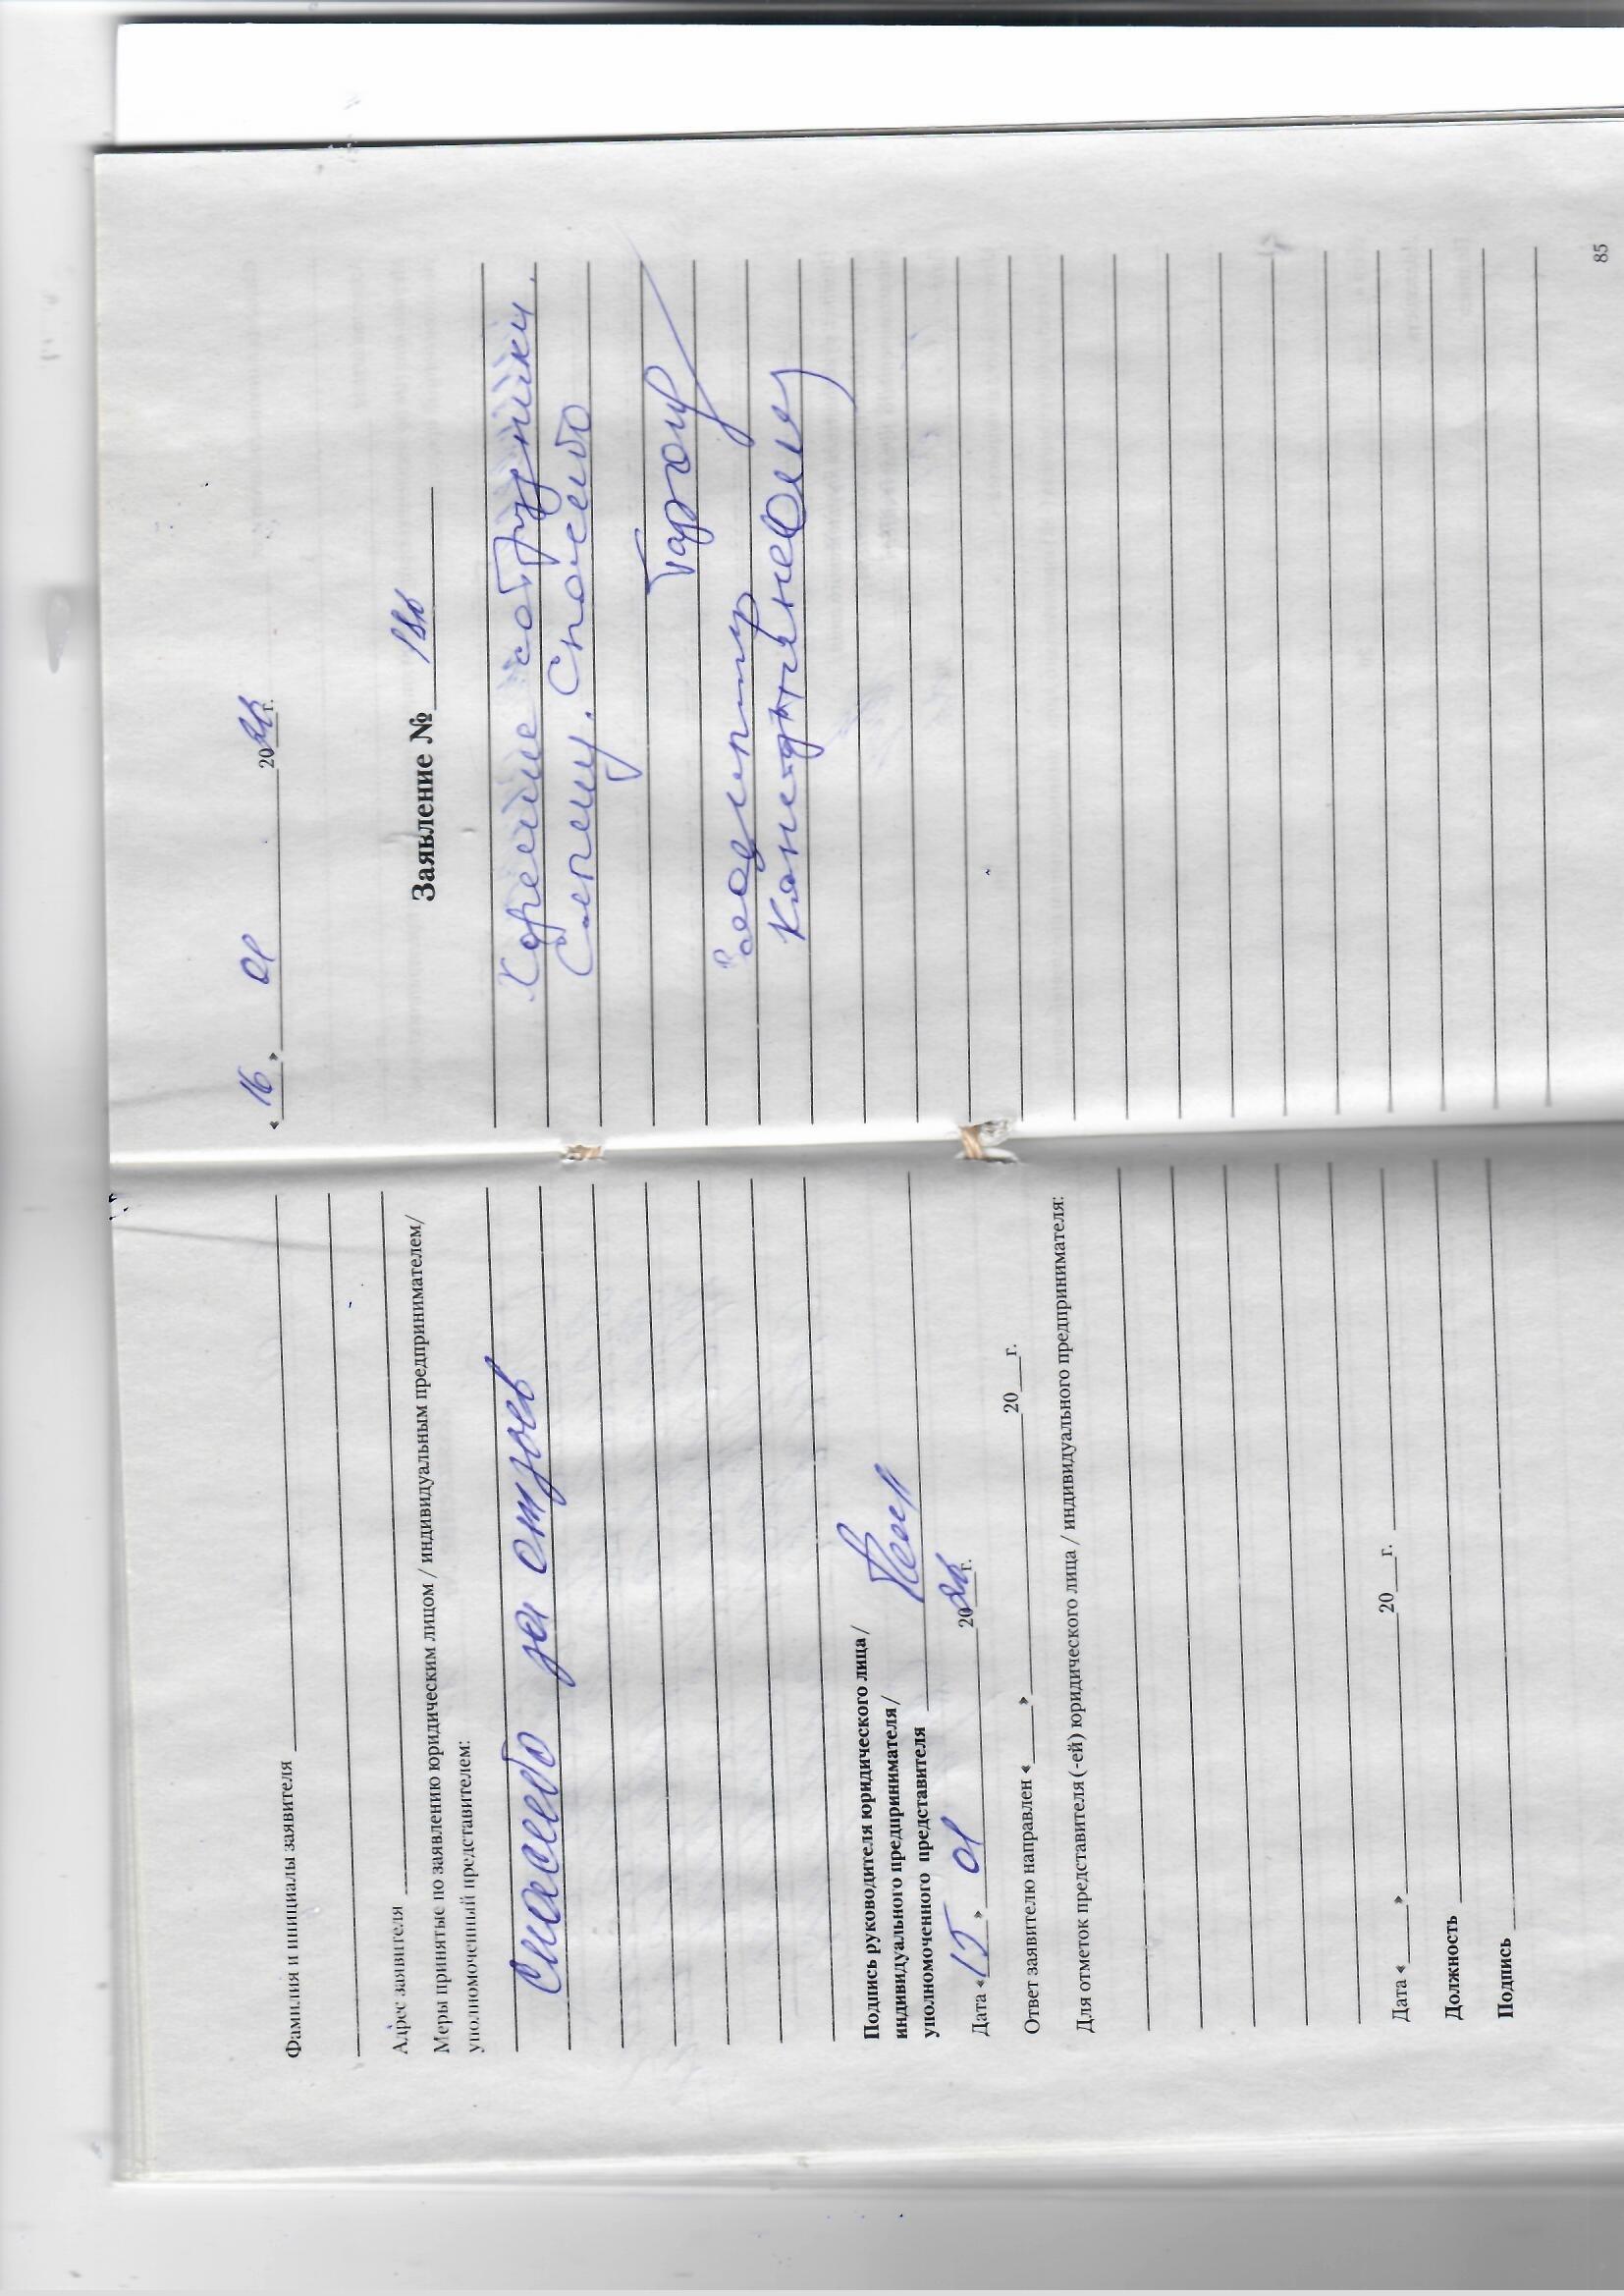 Фамилия и инициалы заявителя
Адрес заявителя
Меры принятые по заявлению юридическим лицом / индивидуальным предпринимателем/
уполномоченный представителем:
Спасибо за отзыв
Подпись руководителя юридического лица /
индивидуального предпринимателя/
уполномоченного представителя
Дата «15» 01 20 г.
Ответ заявителю направлен « » 20 г.
Для отметок представителя (-ей) юридического лица / индивидуального предпринимателя:
Дата « » 20 г.
Должность
Подпись
«16» 01 20 г.
Заявление №
Хорошие сотрудники.
Спасибо
Владимир
85